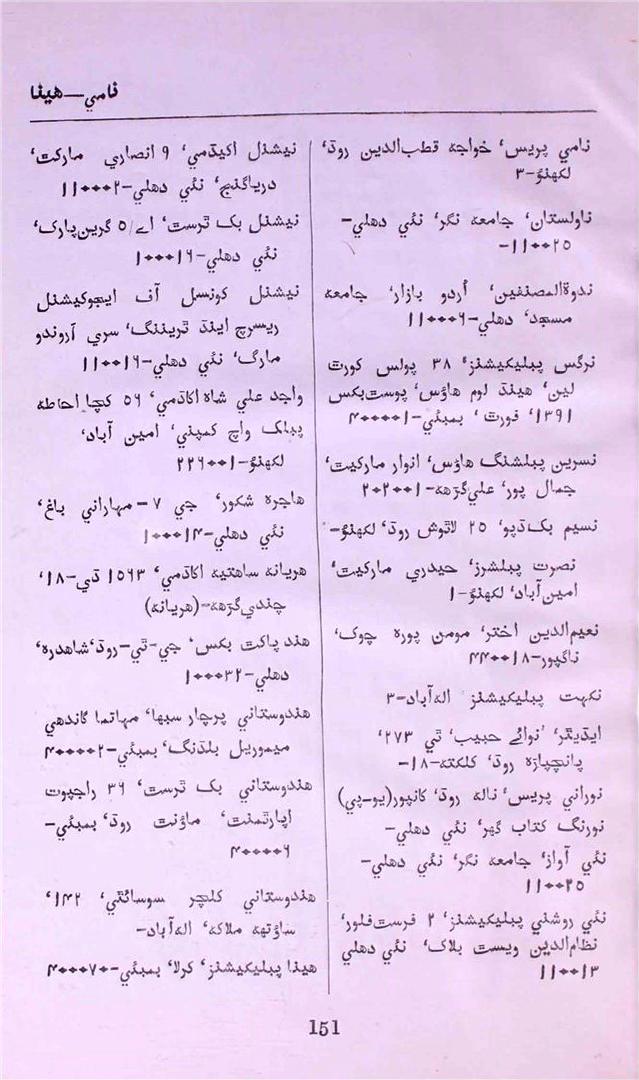 نامي—هينا
نامي پريس، خواجه قطب‌الدين روڈ،
لکهنؤ-۳
ناولستان، جامعه نگر، نئي دهلي-
۱۱۰۰۲۵-
ندوةالمصنفين، أردو بازار، جامعه
مسجد، دهلي-۱۱۰۰۰۶
نرگس پبليکيشنز، ۳۸ پولس کورٹ
لين، هينڈ لوم هاؤس، پوسٹ‌بکس
۱۳۹۱، فورٹ، بمبئي-۴۰۰۰۰۱
نسرين پبلشنگ هاؤس، انوار مارکيٹ،
جمال پور، علي‌گڑهه-۲۰۲۰۰۱
نسيم بک‌ڈپو، ۲۵ لاٹوش روڈ، لکهنؤ-
نصرت پبلشرز، حيدري مارکيٹ،
امين‌آباد، لکهنؤ-۱
نعيم‌الدين اختر، مومن پوره چوک،
ناگپور-۴۴۰۰۱۸
نکهت پبليکيشنز اله‌آباد-۳
ايڈيٹر، نوائے حبيب، ٹي ۲۷۳،
پانچپاڑه روڈ، کلکته-۱۸-
نوراني پريس، ناله روڈ، کانپور(يو-پي)
نورنگ کتاب گهر، نئي دهلي-
نئي آواز، جامعه نگر، نئي دهلي-
۱۱۰۰۲۵
نئي روشني پبليکيشنز، ۲ فرسٹ فلور،
نظام‌الدين ويسٹ بلاک، نئي دهلي
۱۱۰۰۱۳
نيشنل اکيڈمي، ۹ انصاري مارکٹ،
درياگنج، نئي دهلي-۱۱۰۰۰۲
نيشنل بک ٹرسٹ، اے/۵ گرين پارک،
نئي دهلي-۱۰۰۰۱۶
نيشنل کونسل آف ايجوکيشنل
ريسرچ اينڈ ٹريننگ، سري آروندو
مارگ، نئي دهلي-۱۱۰۰۱۶
واجد علي شاه اکاڈمي، ۵۶ کچا احاطه
پبلک واچ کمپني، امين آباد،
لکهنؤ-۲۲۶۰۰۱
هاجره شکور، جي ۷-مهاراني باغ،
نئي دهلي-۱۰۰۰۱۴
هريانه ساهتيه اکاڈمي، ۱۵۶۳ ڈي-۱۸،
چنڈي‌گڑهه-(هريانه)
هند پاکٹ بکس، جي-ٹي-روڈ،شاهدره،
دهلي-۱۰۰۰۳۲
هندوستاني پرچار سبها، مهاتما گاندهي
ميموريل بلڈنگ، بمبئي-۴۰۰۰۰۲
هندوستاني بک ٹرسٹ، ۳۶ راجپوت
اپارٹمنٹ، ماؤنٹ روڈ، بمبئي-
۴۰۰۰۰۶
هندوستاني کلچر سوسائٹي، ۱۴۲،
ساؤتهه ملاکه، اله‌آباد-
هينا پبليکيشنز، کرلا، بمبئي-۴۰۰۰۷۰
151